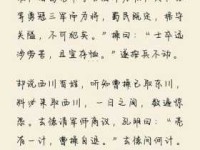 军勇冠三军为将，蜀民既定，据守
关隘，不可犯矣。”操曰：“士卒远
涉劳苦，且宜存恤。”遂按兵不动。
却说西川百姓，听知曹操已取东川，
料必来取西川，一日之间，数遍惊
恐。玄德请军师商议，孔明曰：“亮
有一计，曹操自退。”玄德问何计。